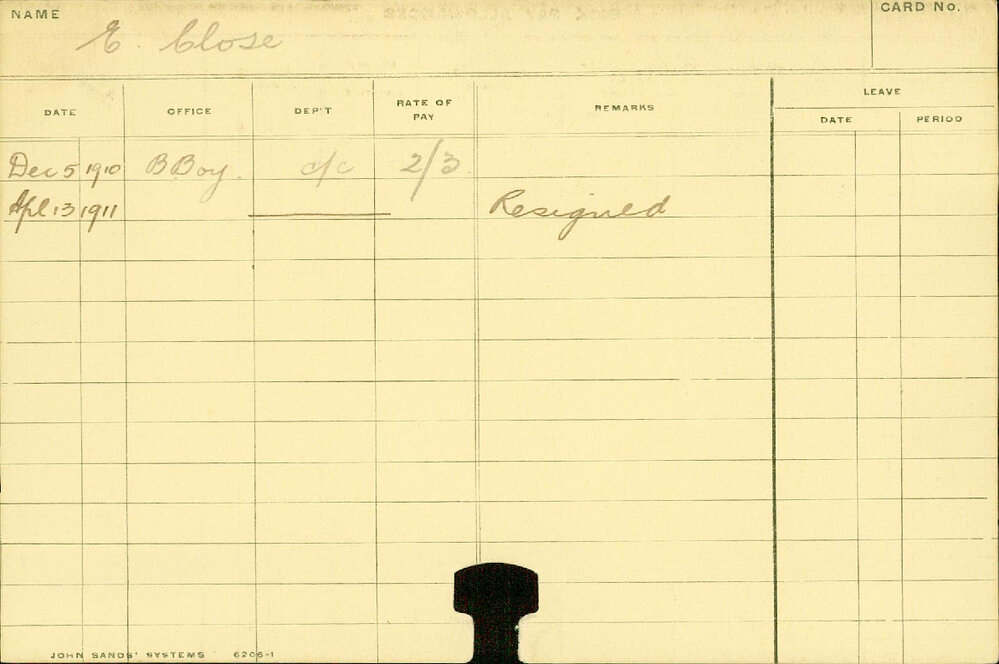 NAME E. Close CARD No.
DATE OFFICE DEP'T RATE OF PAY REMARKS LEAVE
DATE PERIOD
Dec 5 1910 B Boy. c/c 2/3
Apl 13 1911 Resigned
JOHN SANDS' SYSTEMS 6206-1